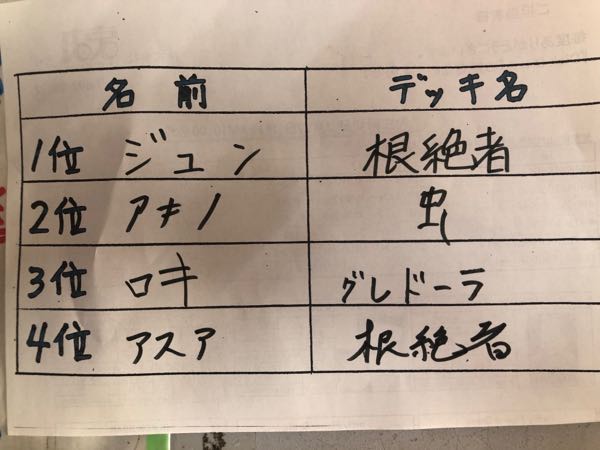 名前 デッキ名
1位 ジュン 根絶者
2位 アキノ 虫
3位 ロキ グレドーラ
4位 アスア 根絶者